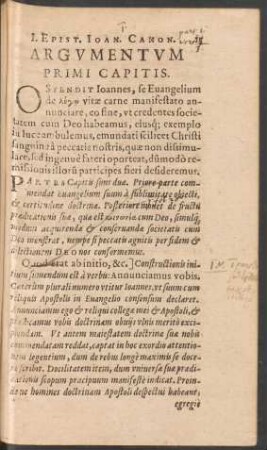 I. EPIST. IOAN. CANON.
ARGVMENTVM
PRIMI CAPITIS.
OSTENDIT Ioannes, se Euangelium
de λόγῳ vitæ carne manifestato an
nunciare, eo fine, vt credentes socie
tatem cum Deo habeamus, eiusq; exemplo
in luce ambulemus, emundati scilicet Christi
sanguine à peccatis nostris, quæ non dissimu-
lare, sed ingenuè fateri oporteat, dũmodò re-
missionis illorũ participes fieri desideremus.
PARTES Capitis sunt duæ. Priore parte
commendat euangelium suum à sublimitate obiecti,
& certitudine doctrinæ. Posteriore docet de fructu
prædicationis suæ, qui est κοινωνία cum Deo, simulq;
modum acquirendæ & conseruandæ societatis cum
Deo monstrat, nempe si peccatis agnitis per fidem &
dilectionem DEO nos conformemus.
Quod erat ab initio, &c.] Constructionis ini-
tium sumendum est à verbis: Annunciamus vobis.
Cæterùm plurali numero vtitur Ioannes, vt suum cum
reliquis Apostolis in Euangelio consensum declaret.
Annunciamus ego & reliqui collegæ mei & Apostoli, &
prædicamus vobis doctrinam obuijs vlnis meritò exci-
piendam. Vt autem maiestatem doctrinæ suæ nobis
commendatam reddat, captat in hoc exordio attentio-
nem legentium, dum de rebus longè maximis se doce-
re scribit. Docilitatem item, dum vniuersæ suæ prædi-
cationis scopum præcipuum manifestè indicat. Proin-
de ne homines doctrinam Apostoli despectui habeant,
egregiè